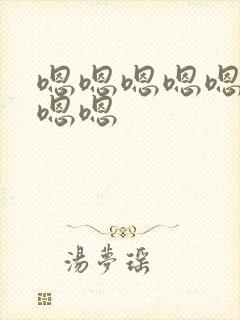 嗯嗯嗯嗯嗯
嗯嗯
湯夢瑶